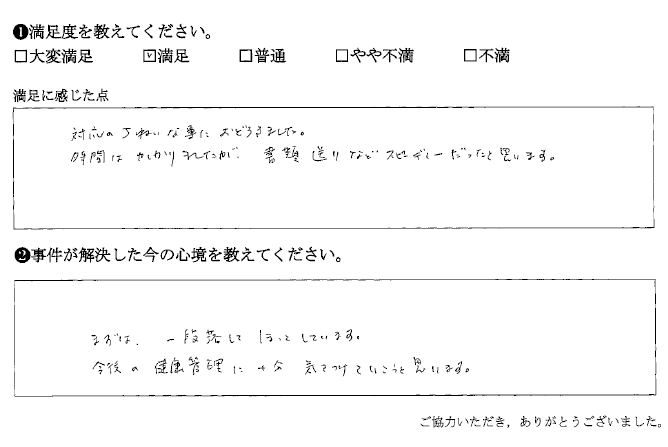 ❶満足度を教えてください。
□大変満足 ☑満足 □普通 □やや不満 □不満
満足に感じた点
対応の丁ねいな事におどろきました。
時間はかかりましたが、書類送りなどスピーディーだったと思います。
❷事件が解決した今の心境を教えてください。
まずは、一段落してほっとしています。
今後の健康管理に十分気をつけていこうと思います。
ご協力いただき，ありがとうございました。